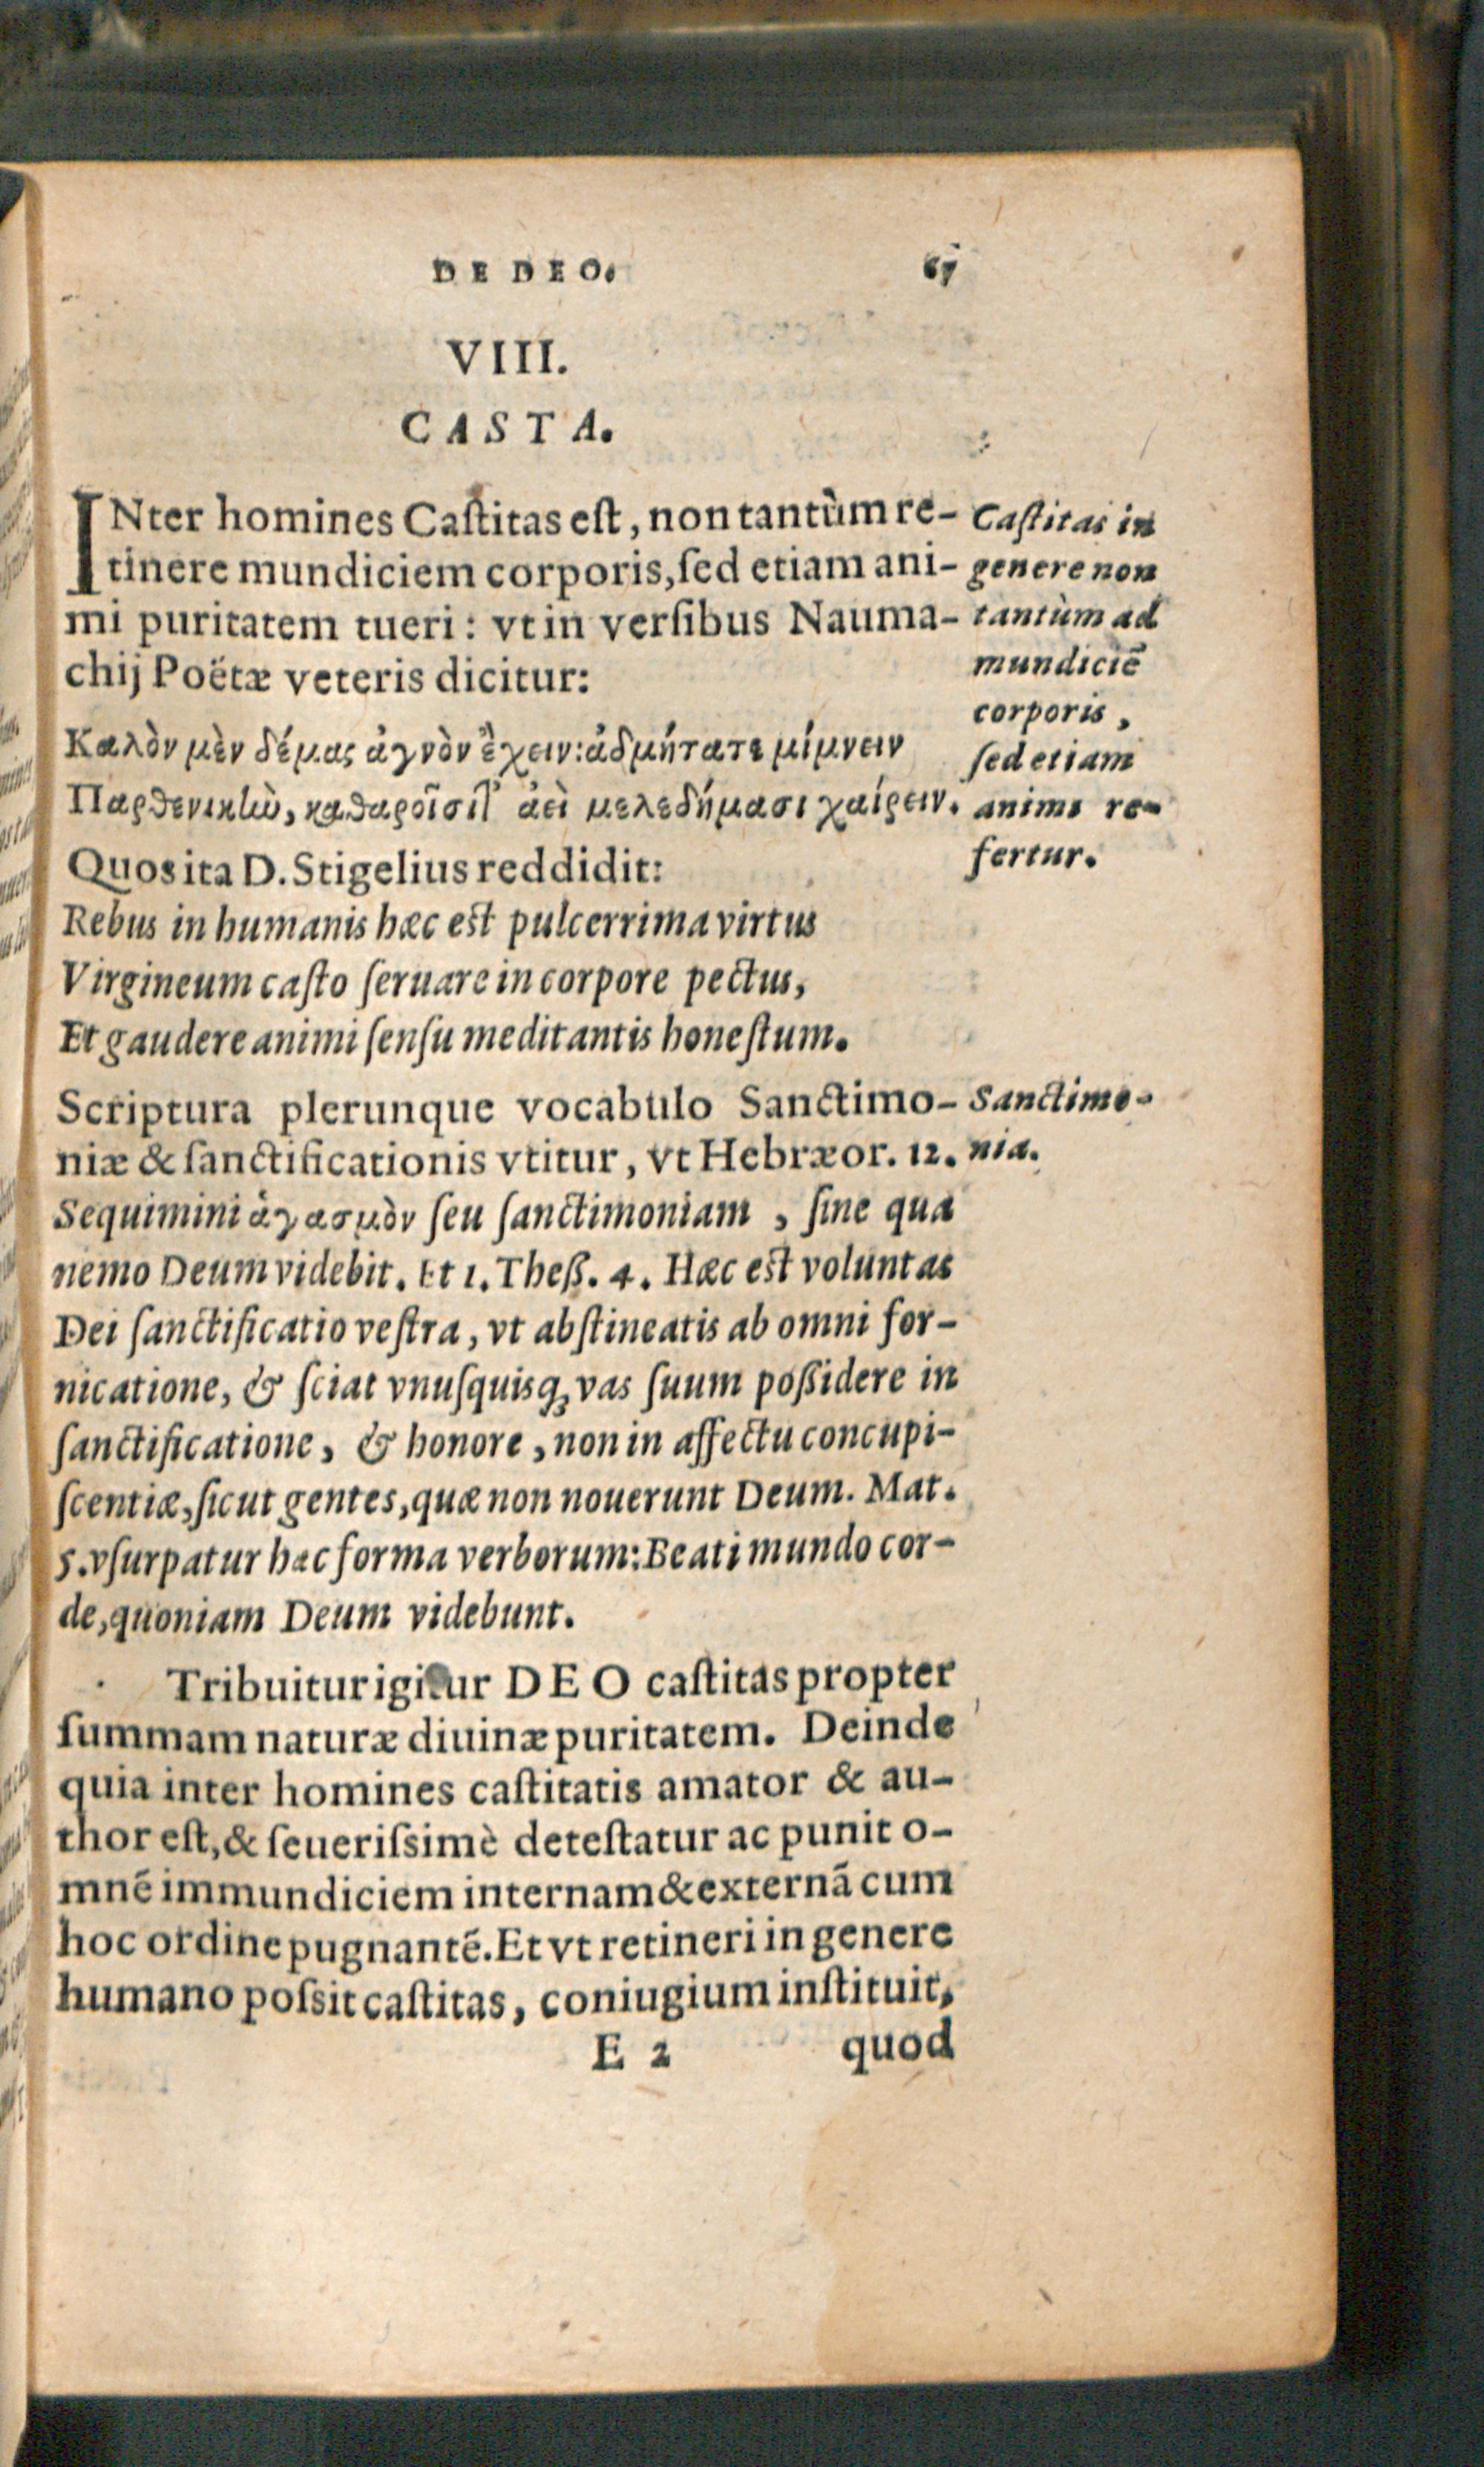 DE DEO. 67
VIII.
CASTA.
INter homines Caſtitas eſt, non tantùm re-
tinere mundiciem corporis, ſed etiam ani-
mi puritatem tueri: vt in verſibus Nauma-
chij Poëtæ veteris dicitur:
Καλὸν μὲν δέμας ἁγνὸν ἔχειν: ἀδμήτατε μίμνειν
Παρθενικὴν, καθαροῖσί τ' ἀεὶ μελεδήμασι χαίρειν.
Quos ita D. Stigelius reddidit:
Rebus in humanis hæc eſt pulcerrima virtus
Virgineum caſto ſeruare in corpore pectus,
Et gaudere animi ſenſu meditantis honeſtum.
Scriptura plerunque vocabulo Sanctimo-
niæ & ſanctificationis vtitur, vt Hebræor. 12.
Sequimini ἁγασμὸν ſeu ſanctimoniam, ſine qua
nemo Deum videbit. Et 1. Theß. 4. Hæc eſt voluntas
Dei ſanctificatio veſtra, vt abſtineatis ab omni for-
nicatione, & ſciat vnuſquisq; vas ſuum poßidere in
ſanctificatione, & honore, non in affectu concupi-
ſcentiæ, ſicut gentes, quæ non nouerunt Deum. Mat.
5. vſurpatur hæc forma verborum: Beati mundo cor-
de, quoniam Deum videbunt.
Tribuitur igitur DEO caſtitas propter
ſummam naturæ diuinæ puritatem. Deinde
quia inter homines caſtitatis amator & au-
thor eſt, & ſeueriſsimè deteſtatur ac punit o-
mnē immundiciem internam & externā cum
hoc ordine pugnantē. Et vt retineri in genere
humano poſsit caſtitas, coniugium inſtituit,
E 2 quod
Caſtitas in
genere non
tantùm ad
mundiciē
corporis,
ſed etiam
animi re-
fertur.
Sanctimo-
nia.